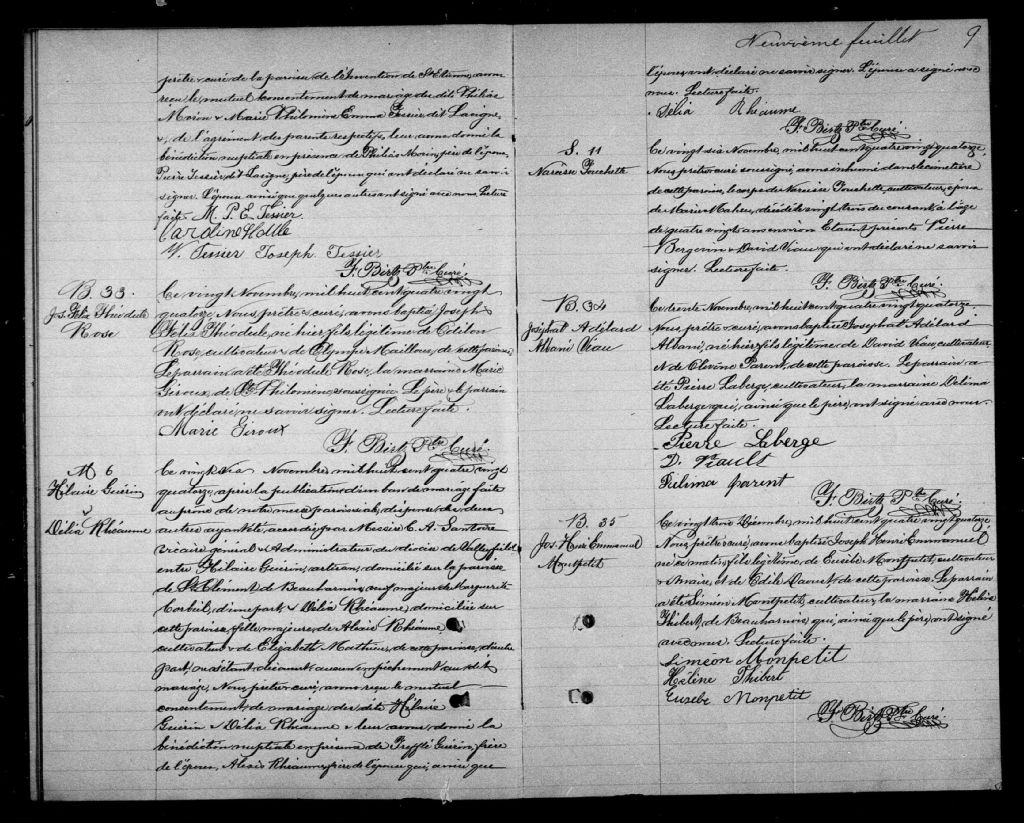 prêtre & curé de la paroisse de l'Invention de St Etienne, avons
reçu le mutuel consentement de mariage du dit Philéas
Morin & Marie Philomène Emma Tessier dit Lavigne
&, de l'agrément des parents respectifs, leur avons donné la
bénédiction nuptiale en présence de Philéas Morin, père de l'époux,
Pierre Tessier dit Lavigne, père de l'épouse qui ont déclaré ne savoir
signer. L'épouse ainsi que quelques autres ont signé avec nous. Lecture
faite. M. P. E. Tessier
Caroline
V. Tessier Joseph Tessier
F. Birtz Ptre Curé
B. 33.
Jos. Félix Théodule
Rose
Ce vingt Novembre, mil huit cent quatre vingt
quatorze, Nous, prêtre & curé, avons baptisé Joseph
Félix Théodule, né hier fils légitime de Odilon
Rose, cultivateur & de Olympe Mailloux, de cette paroisse.
Le parrain a été Théodule Rose, la marraine Marie
Giroux, de Ste Philomène, soussignée. Le père & le parrain
ont déclaré ne savoir signer. Lecture faite.
Marie Giroux
F. Birtz Ptre Curé
M 6
Hilaire Guérin
&
Délia Rhéaume
Ce vingt six Novembre, mil huit cent quatre vingt
quatorze, après la publication d'un ban de mariage faite
au prône de notre messe paroissiale, dispense des deux
autres ayant été accordée par Messire C. A. Santoire
vicaire général & Administrateur du diocèse de Valleyfield
entre Hilaire Guérin, artisan, domicilié sur la paroisse
de St Clément de Beauharnois, veuf majeur de Marguerite
Corbeil, d'une part, & Délia Rhéaume, domiciliée sur
cette paroisse, fille majeure de Alexis Rhéaume,
cultivateur & de Elizabeth Mathieu, de cette paroisse, d'autre
part, ne s'étant découvert aucun empêchement au dit
mariage, Nous, prêtre & curé, avons reçu le mutuel
consentement de mariage des dits Hilaire
Guérin & Délia Rhéaume & leur avons donné la
bénédiction nuptiale en présence de Trefflé Guérin, frère
de l'époux, Alexis Rhéaume, père de l'épouse qui, ainsi que
Neuvième feuillet 9
l'époux, ont déclaré ne savoir signer. L'épouse a signé avec
nous. Lecture faite.
Délia Rhéaume
F. Birtz Ptre Curé
S. 11
Narcisse Fouchette
Ce vingt six Novembre, mil huit cent quatre vingt quatorze,
Nous, prêtre & curé soussigné, avons inhumé dans le cimetière
de cette paroisse, le corps de Narcisse Fouchette, cultivateur, époux
de Marie Maheu, décédé le vingt trois du courant à l'âge
de quatre vingts ans environ. Etaient présents Pierre
Bergevin & David Viau qui ont déclaré ne savoir
signer. Lecture faite.
F. Birtz Ptre Curé
B. 34
Josaphat Adélard
Albani Viau
Ce trente Novembre, mil huit cent quatre vingt quatorze
Nous, prêtre & curé, avons baptisé Josaphat Adélard
Albani, né hier fils légitime de David Viau, cultivateur,
& de Elvine Parent, de cette paroisse. Le parrain a
été Pierre Laberge, cultivateur, la marraine Délima
Laberge qui, ainsi que le père, ont signé avec nous.
Lecture faite.
Pierre Laberge
D. Viault
parent
F. Birtz Ptre Curé
B. 35
Jos. Henri Emmanuel
Montpetit
Ce vingt trois Décembre, mil huit cent quatre vingt quatorze
Nous, prêtre & curé, avons baptisé Joseph Henri Emmanuel
né ce matin, fils légitime de Eusèbe Montpetit, cultivateur
& maire, et de Odile Daoust, de cette paroisse. Le parrain
a été Siméon Montpetit, cultivateur, la marraine Hélène
Thibert, de Beauharnois, qui, ainsi que le père, ont signé
avec nous. Lecture faite.
Siméon Monpetit
Hélène Thibert
Eusèbe Monpetit
F. Birtz Ptre Curé